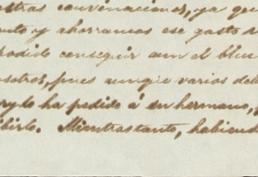 stras convenaciones, ya que
nto y ahorrarnos ese gasto
podido conseguir aun el blue
osotros, pues aunque varios deb
lo ha pedido á su hermano,
ibirlo. Mientrastanto, habiend